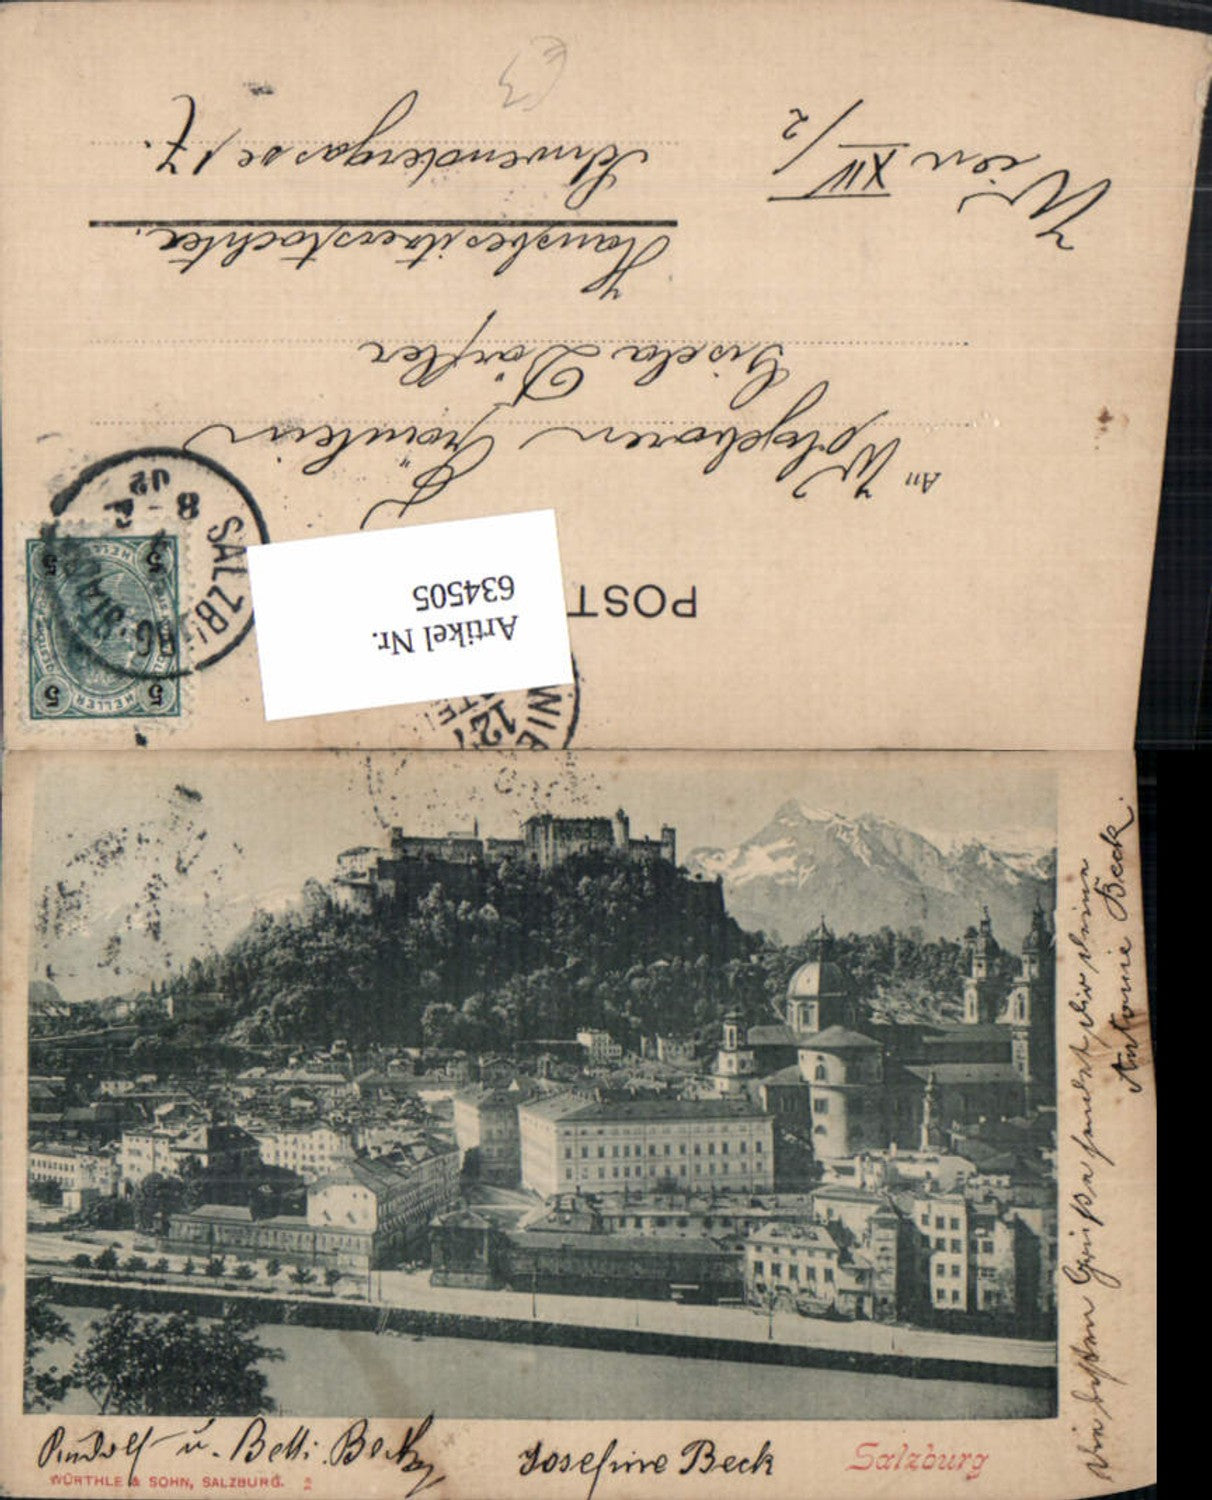 POST
An Wohlgeboren Fräulein
Gisela Dörfler
Hausbesitzerstochter.
Schwendergasse 17.
Wien XIV/2
SALZBURG
8
02
5 5
HELLER
5 5
WIEN
12
Artikel Nr.
634505
Die besten Grüße sendet dir deine
Antonie Beck.
Rudolf u. Betti Beck
Josefine Beck
Salzburg
WÜRTHLE & SOHN, SALZBURG. 2